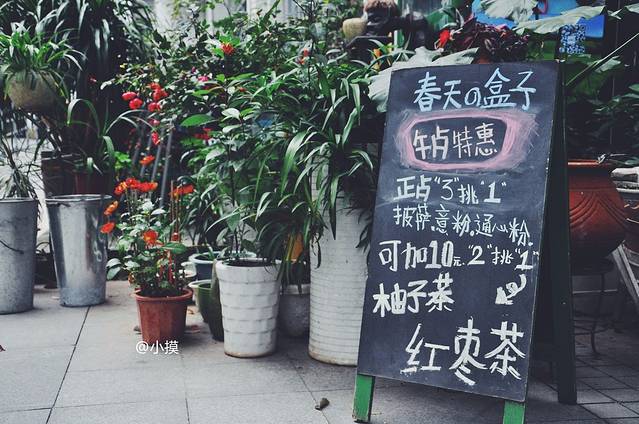 春天の盒子
午卢特惠
正卢"3"挑"1"
披萨.意粉.通心粉.
可加10元."2"挑"1"
柚子茶
红枣茶
@小摸